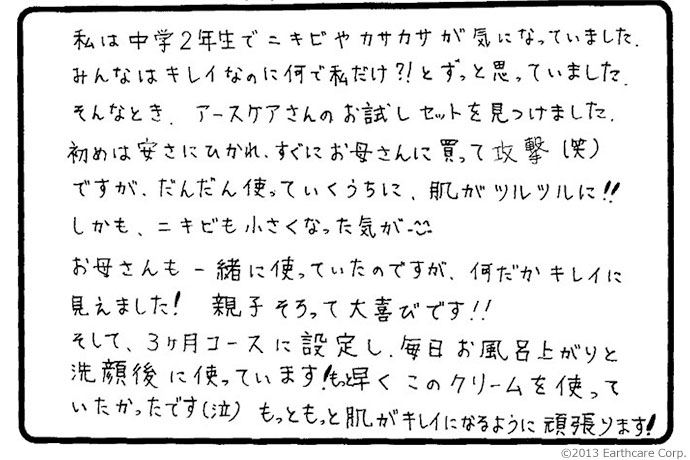 私は中学2年生でニキビやカサカサが気になっていました.
みんなはキレイなのに何で私だけ?!とずっと思っていました.
そんなとき、アースケアさんのお試しセットを見つけました.
初めは安さにひかれ、すぐにお母さんに買って攻撃(笑)
ですが、だんだん使っていくうちに、肌がツルツルに!!
しかも、ニキビも小さくなった気が
お母さんも一緒に使っていたのですが、何だかキレイに
見えました! 親子そろって大喜びです!!
そして、3ヶ月コースに設定し、毎日お風呂上がりと
洗顔後に使っています!もっと早くこのクリームを使って
いたかったです(泣) もっともっと肌がキレイになるように頑張ります!
©2013 Earthcare Corp.